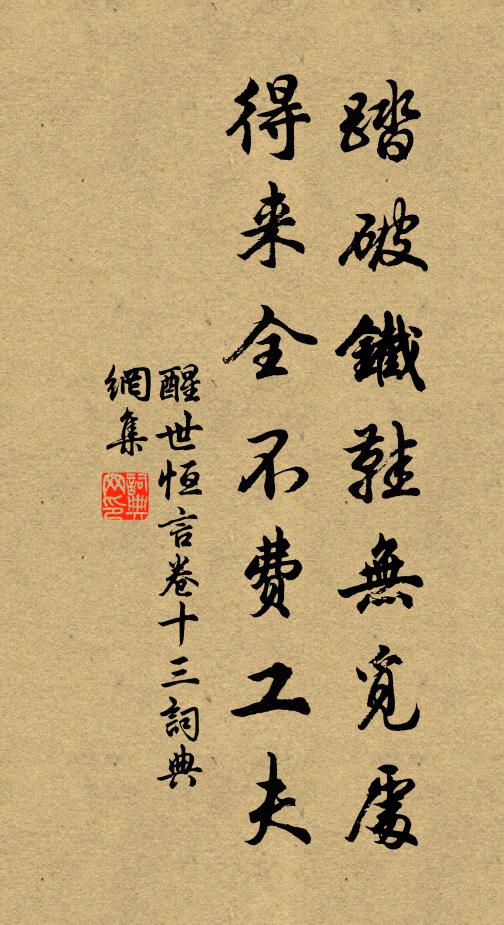 踏破鐵鞋無覓處
得来全不費工夫
醒世恒言卷十三詞典
網集
詞典
网印